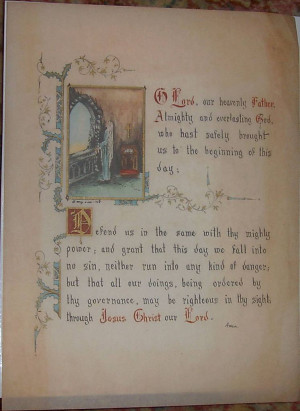 O Lord, our heavenly Father,
Almighty and everlasting God,
who hast safely brought
us to the beginning of this
day;
Defend us in the same with thy mighty
power; and grant that this day we fall into
no sin, neither run into any kind of danger;
but that all our doings, being ordered by
thy governance, may be righteous in thy sight,
through Jesus Christ our Lord.
Amen